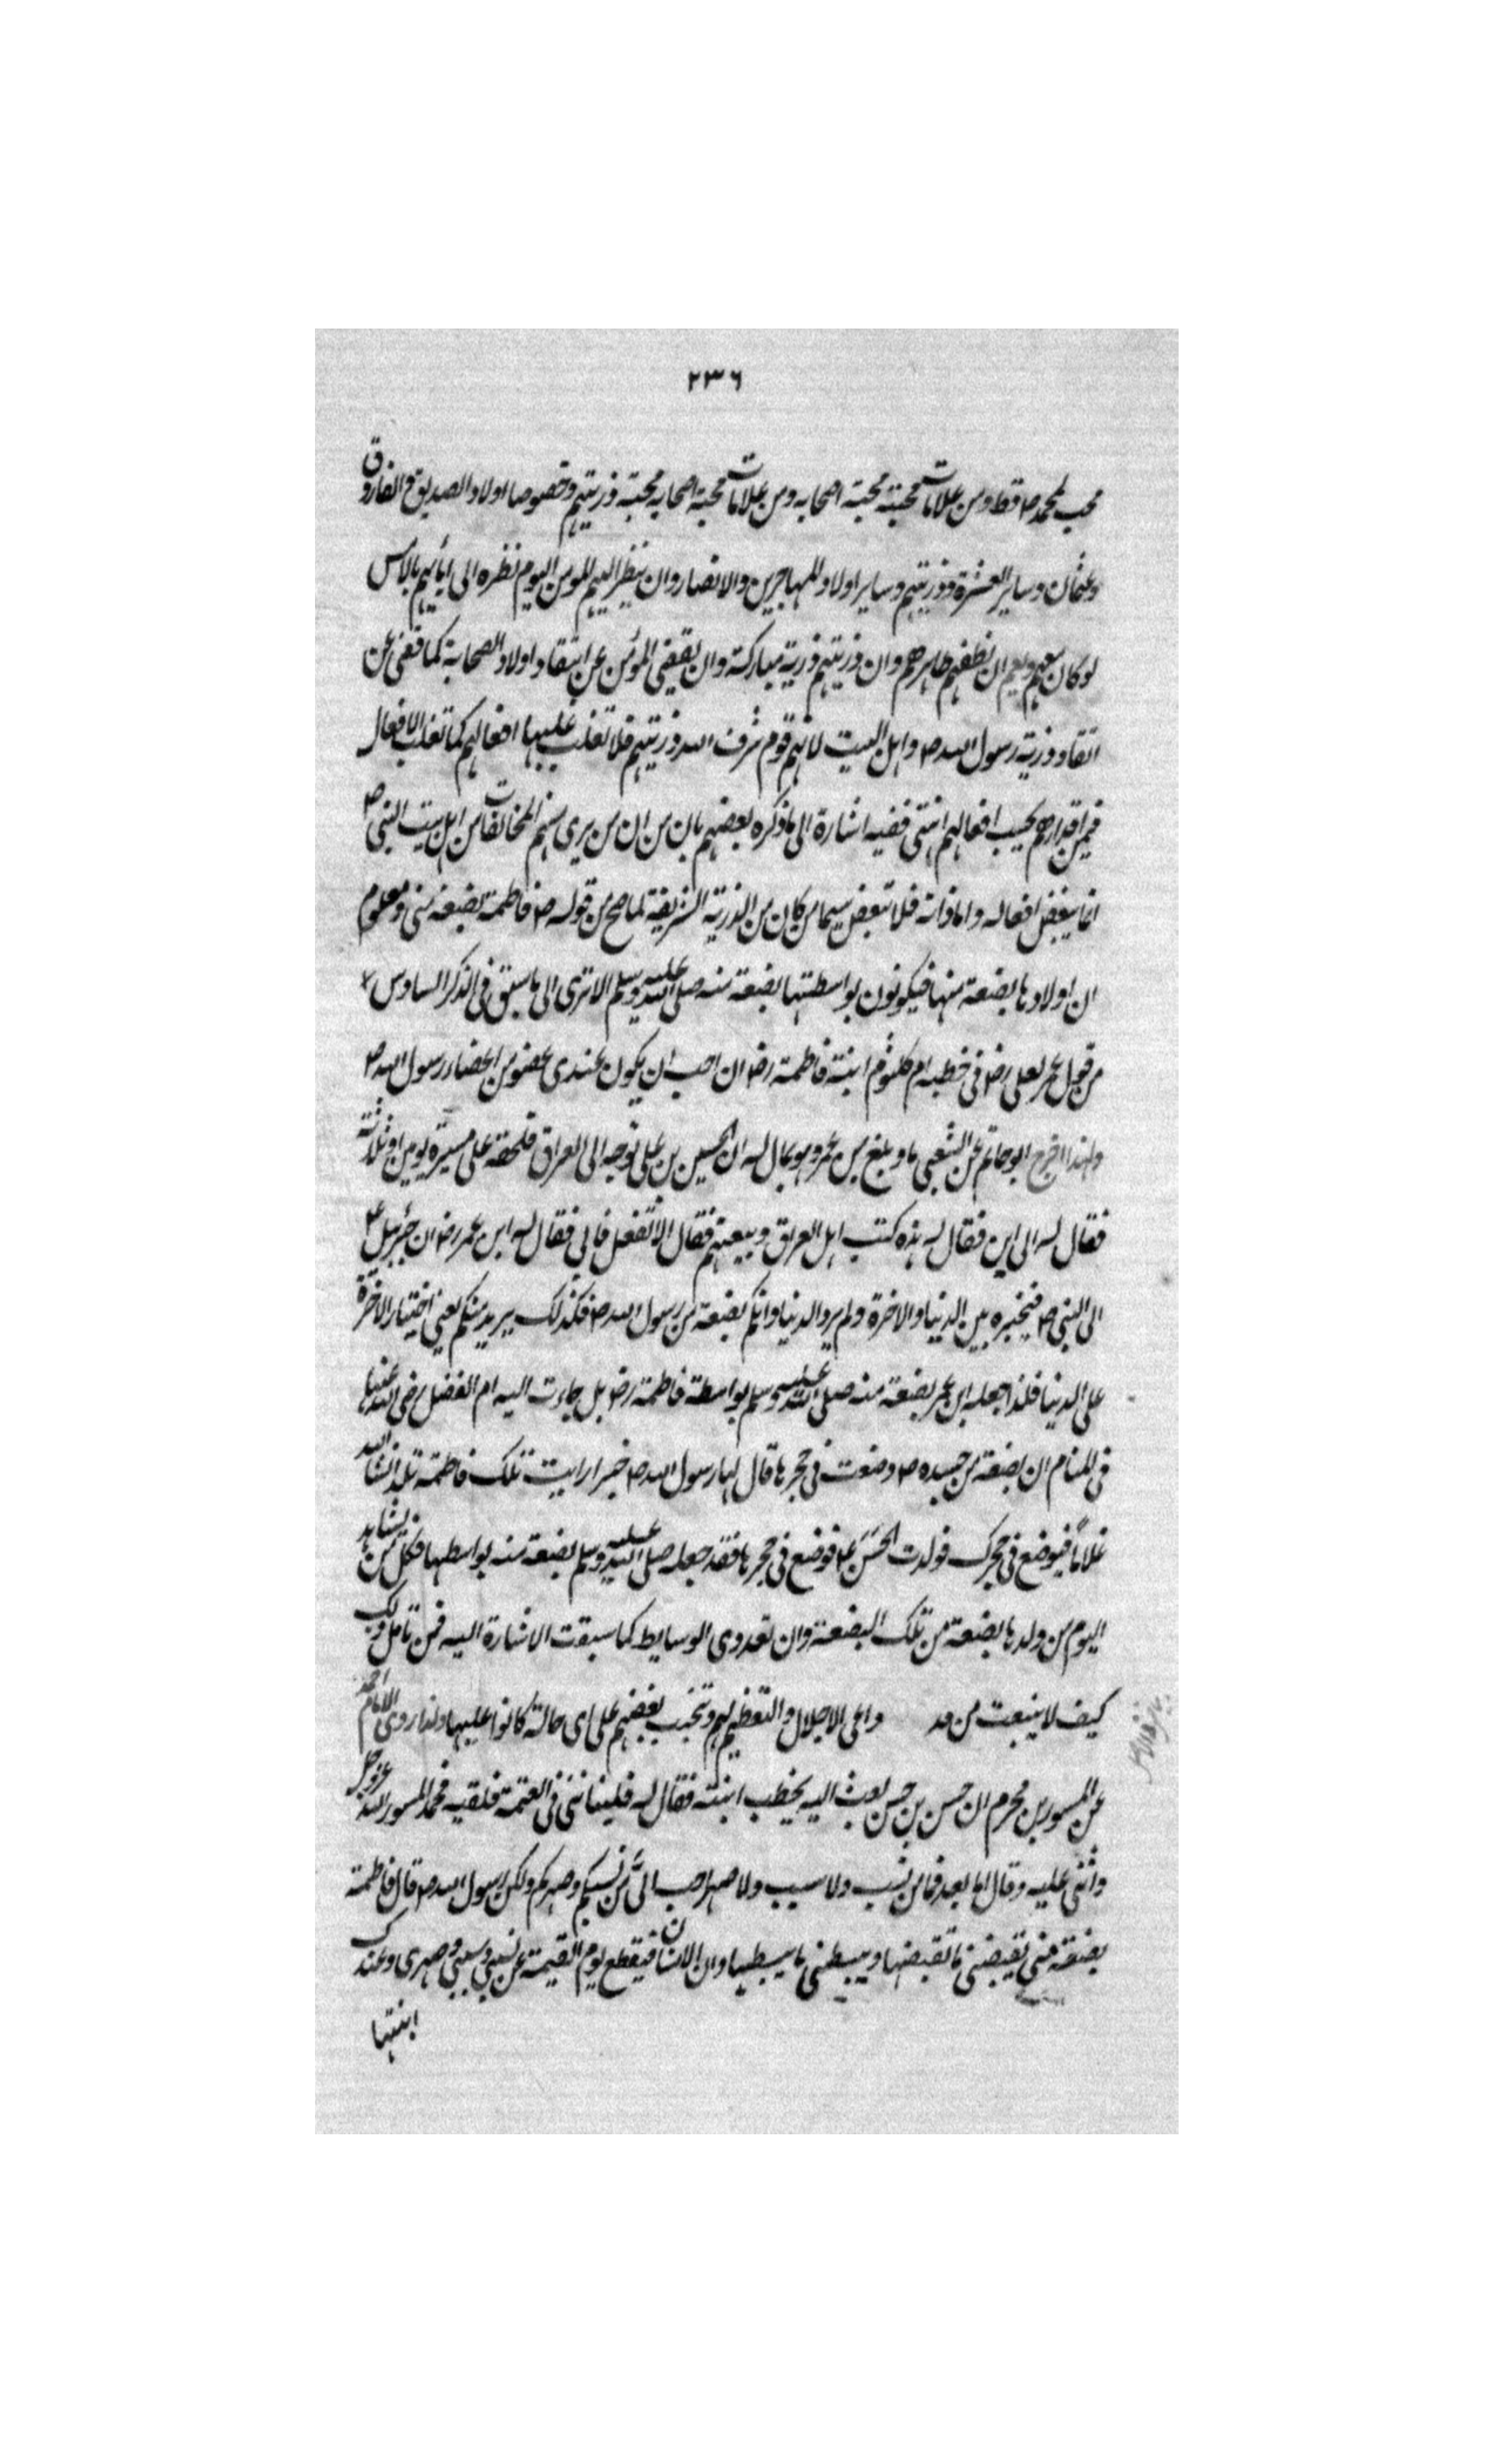 ٢٣٦
محب لمحمد ص قط ومن علامات محبته محبة اصحابه ومن علامات محبة اصحابه محبة ذريتهم وخصوصا اولاد الصديق والفاروق
وعثمان وساير العشرة وذريتهم وساير اولاد المهاجرين والانصار وان ينظر اليهم المومن اليوم نظره الى ابائهم بالامس
لو كان معهم ويعلم ان نطفهم طاهرهم وان ذريتهم ذرية مباركة وان يقضى المؤمن عن انتقاد اولاد الصحابة كما قضى عن
انتقاد ذرية رسول الله ص واهل البيت لانهم قوم شرف الله ذريتهم فلا تغلب عليها افعالهم كما تغلب الافعال
فيمن اقدارهم بحسب افعالهم انتهى ففيه اشارة الى ما ذكره بعضهم بان من ان من يرى منهم المخالفات من اهل بيت النبي ص
انما يبغض افعاله واما ذاته فلا تبغض سيما من كان من الذرية الشريفة لما صح من قوله ص فاطمة بضعة منى ومعلوم
ان اولادها بضعة منها فيكونون بواسطتها بضعة منه صلى الله عليه وسلم الا ترى الى ما سبق فى الذكر السادس
من قول عمر لعلى رض فى خطبه ام كلثوم ابنة فاطمة رض ان احب ان يكون عندى عضو من اعضاء رسول الله ص
ولهذا اخرج ابو حاتم عن الشعبى ما وبلغ بن عمر وهو بمال له ان الحسين بن على توجه الى العراق فلحقه على مسيرة يومين او ثلاثة
فقال له الى اين فقال له هذه كتب اهل العراق وبيعتهم فقال لا تفعل فابى فقال له ابن عمر رض ان جبرئيل ع
الى النبى ص فيخبره بين الدنيا والاخرة ولم يرد الدنيا وانكم بضعة من رسول الله ص فكذلك يريد منكم يعنى اختيار الاخرة
على الدنيا فلذا جعله ابن عمر بضعة منه صلى الله عليه وسلم بواسطة فاطمة رض بل جاءت اليه ام الفضل رضى الله عنها
فى المنام ان بضعة من جسده ص وضعت فى حجرها قال لها رسول الله ص خيرا رايت تلك فاطمة تلد انشا الله
غلاما فيوضع فى حجرك فولدت الحسن ع فوضع فى حجرها فقد جعله صلى الله عليه وسلم بضعة منه بواسطها فكل من يشاهد
اليوم من ولدها بضعة من تلك البضعة وان تعددى الوسايط كما سبقت الاشارة اليه فمن تامل ذلك
كيف لا ينبعث من داعى الاجلال والتعظيم لهم وتجنب بغضهم على اى حالة كانوا عليها ولذا روى الامام احمد
عن المسور بن مخرم ان حسن بن حسن بعث اليه يخطب ابنته فقال له فليناننى فى العتمة فلقيه فحمد المسور الله عز وجل
واثنى عليه وقال اما بعد فما من نسب ولا سبب ولا صهر احب الىّ من نسبكم وصهركم ولكن رسول الله ص قال فاطمة
بضعة منى يقبضنى ما تقبضها ويبسطنى ما يبسطها وان الانسان فيقطع يوم القيمة عن نسبى وسببى وصهرى وعندك
ابنتها